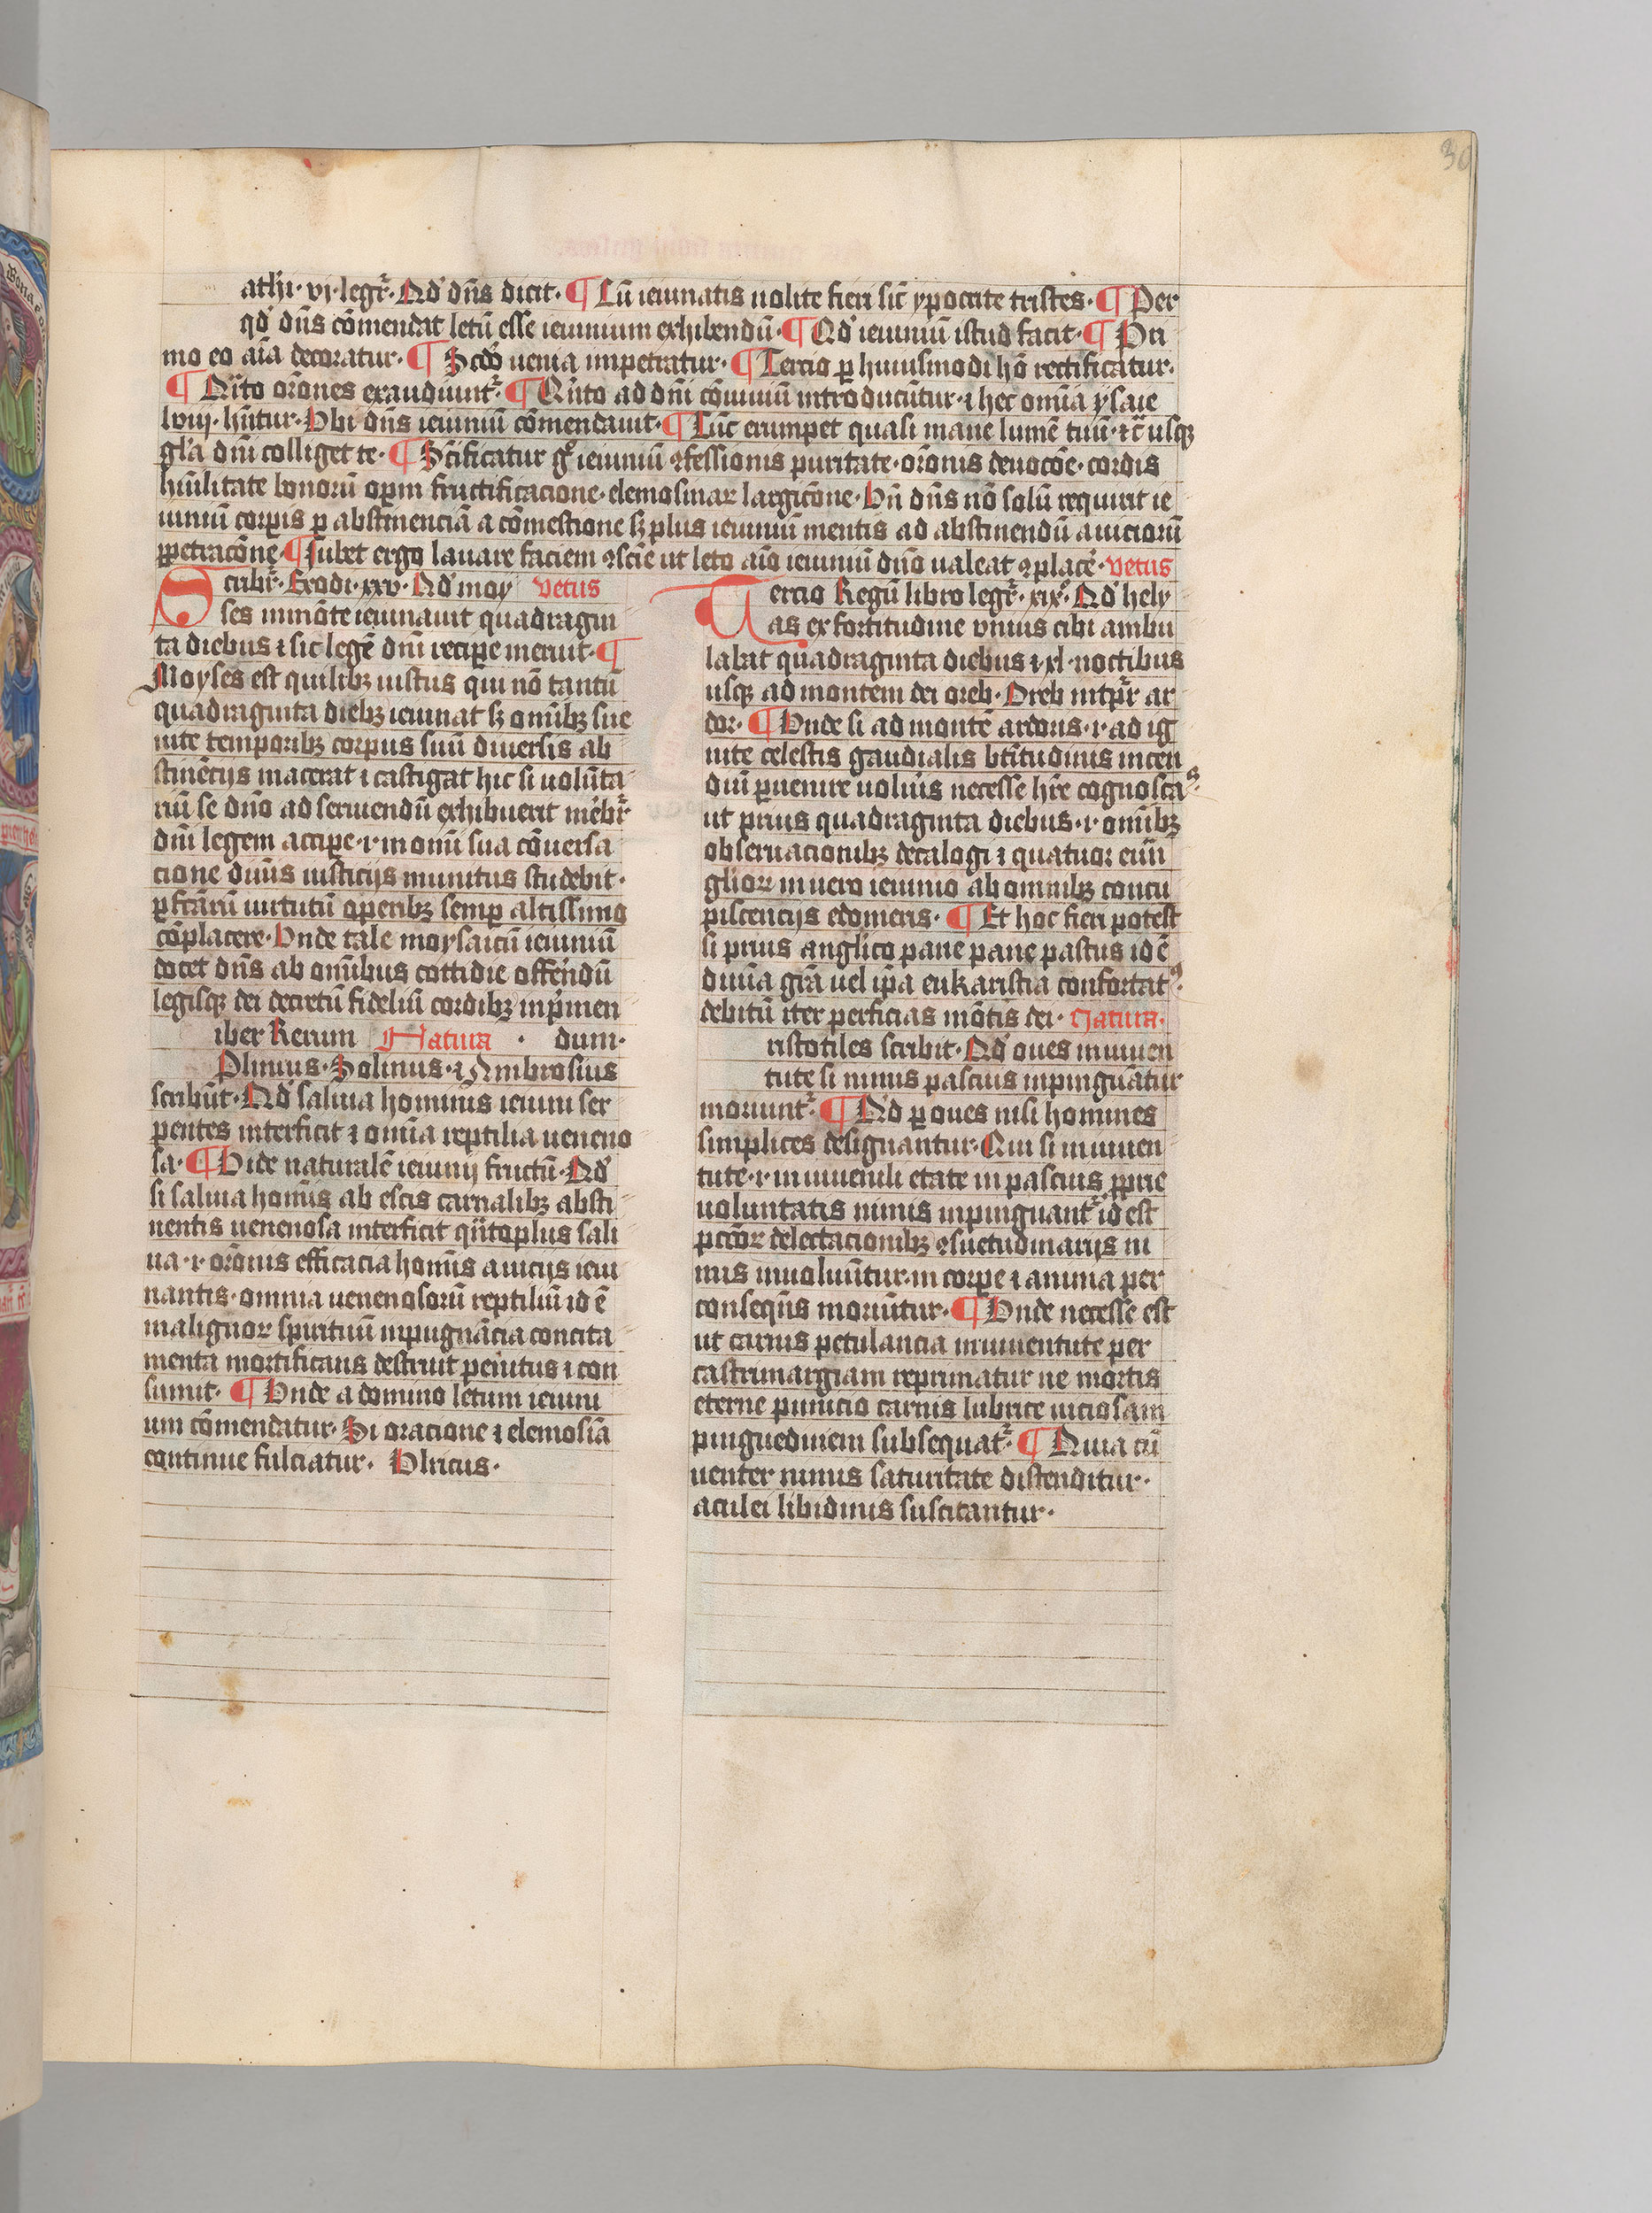 30
athi· vj·legr̄· Qd' dn̄s dicit· ¶ Cū ieiunatis nolite fieri sic̄ ypocrite tristes· ¶ Per
qd' dn̄s cōmendat letū esse ieiunium exhibendū· ¶ Qd' ieiuniū istud facit· ¶ Pri
mo eo aīa decoratur· ¶ Scdo venia impetratur· ¶ Tercio ꝑ huiusmodi hō rectificatur·
¶ Qrto orōnes exaudiuntr̄· ¶ Qnto ad dn̄i cōuiuiū introducūtur· ⁊ hec omīa ysaie
lviij· hn̄tur· Vbi dn̄s ieiuniū cōmendauit· ¶ Tūc erumpet quasi mane lumē tuū· ⁊c̄ usqꝫ
glīa dn̄i colliget te· ¶ Sc̄ificatur gͦ ieiuniū ꝯfessionis puritate· orōnis deuocōe· cordis
hūilitate bonorū oꝑm fructificacione· elemosinaꝝ largicōne· Vn̄ dn̄s nō solū requirit ie
iuniū corꝑis ꝑ abstinenciā a cōmestione sꝫ plus ieiuniū mentis ad abstinendū a uiciorū
ꝑpetracōne· ¶ Iubet ergo lauare faciem ꝯscīe ut leto aīo ieiuniū dn̄o ualeat ꝯplacē· vetus
Scribr̄· Exodi· xxv· Qd' moy vetus
ses in mōte ieiunauit quadragin
ta diebus ⁊ sic legē dn̄i reciꝑe meruit· ¶
Moyses est quilibꝫ iustus qui nō tantū
quadraginta diebꝫ ieiunat sꝫ omībꝫ sue
uite temporibꝫ corpus suū diuersis ab
stinēcijs macerat ⁊ castigat hic si uolūta
riū se dn̄o ad seruiendū exhibuerit mēbr̄
dn̄i legem acciꝑe· ⁊· in omī sua cōuersa
cione diuīs iusticijs munitus studebit·
ꝑ sc̄arū uirtutū operibꝫ semꝑ altissimo
cōplacere· Vnde tale moysaicū ieiuniū
docet dn̄s ab omībus cottidie offēndū
legisqꝫ dei decretū fideliū cordibꝫ inpͥmen
iber Rerum Natura · dum·
Plinius· Solinus· ⁊ Ambrosius
scribūt· Qd' saliua hominis ieiuni ser
pentes interficit ⁊ omīa reptilia ueneno
sa· ¶ Vide naturalē ieiunij fructū· Qd'
si saliua homīs ab escis carnalibꝫ absti
nentis uenenosa interficit qn̄to plus sali
ua· ⁊· orōnis efficacia homīs a uicijs ieiu
nantis· omnia uenenosorū reptiliū id ē
malignoꝝ spirituū inpugnācia concita
menta mortificans destruit penitus ⁊ con
sumit· ¶ Vnde a domino letum ieiuni
um cōmendatur· Si oracione ⁊ elemosīa
continue fulciatur· Vlricus·
Tercio Regū libro legr̄· xixͦ· Qd' hely
as ex fortitudine vnius cibi ambu
labat quadraginta diebus ⁊ xl· noctibus
usqꝫ ad montem dei oreb· Oreb intꝑr̄ ar
dor· ¶ Vnde si ad montē ardoris· ⁊· ad ig
nite celestis gaudialis btītudinis incen
diū ꝑuenire uoluis necesse hr̄e cognoscas·
ut prius quadraginta diebus· ⁊· omībꝫ
obseruacionibꝫ decalogi ⁊ quatuor eūn
glioꝝ in uero ieiunio ab omnibꝫ concu
piscencijs edomeris· ¶ Et hoc fieri potest
si prius anglico pane pane pastus id ē
diuīa grā uel ip̄a eukaristia confortatꝰ·
debitū iter perficias mōtis dei· Natura·
ristotiles scribit· Qd' oues in iuuen
tute si nimis pascuis inpinguātur
moriuntr̄· ¶ Qd' ꝑ oues nisi homines
simplices designantur· Qui si in iuuen
tute· ⁊· in iuuenili etate in pascuis ꝓprie
uoluntatis nimis inpinguantr̄ id est
pctōꝝ delectacionibꝫ ꝯsuetudinarijs ni
mis inuoluūtur· in corꝑe ⁊ anima per
conseqn̄s moriūtur· ¶ Vnde necesse est
ut carnis petulancia in iuuentute per
castrimargiam reprimatur ne mortis
eterne punicio carnis lubrice uiciosam
pinguedinem subsequatr̄· ¶ Quia cū
uenter nimis saturitate distenditur·
aculei libidinis suscitantur·